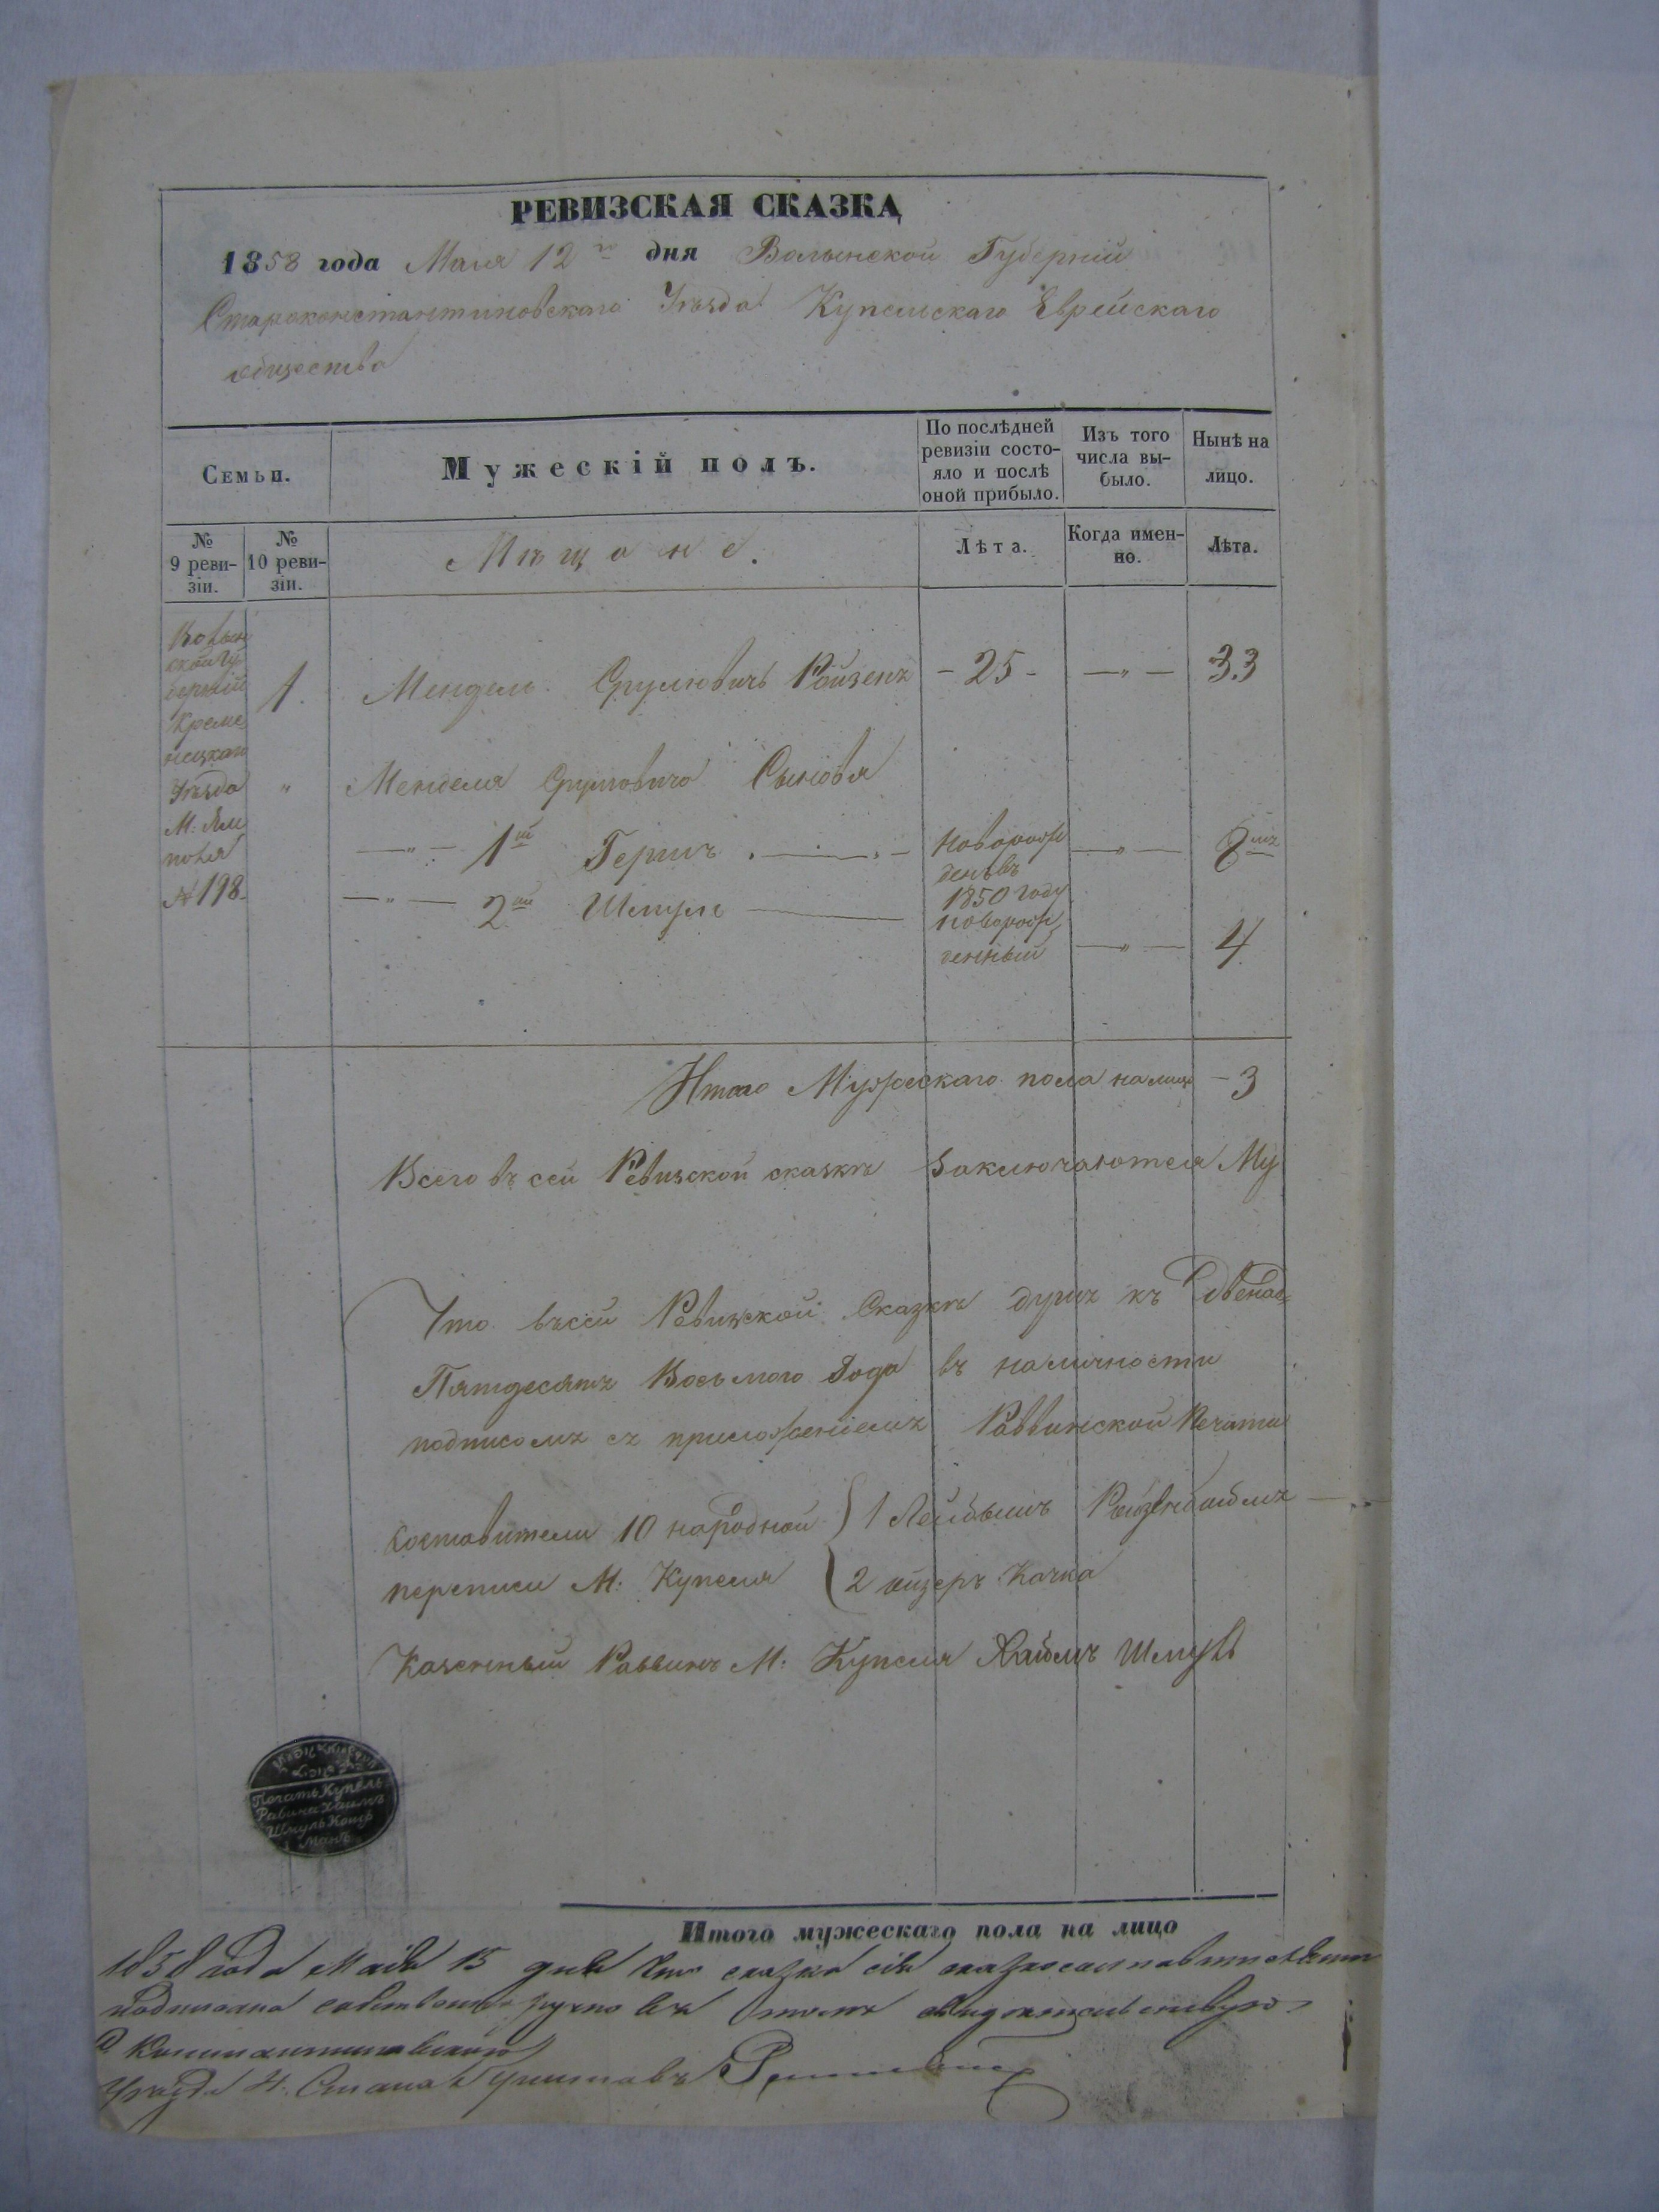 РЕВИЗСКАЯ СКАЗКА
1858 года Мая 12го дня Волынской Губерніи
Староконстантиновскаго Уѣзда Купельскаго Еврейскаго
общества
Семьи.
Мужескій полъ.
По послѣдней ревизіи состо-
яло и послѣ
оной прибыло.
Изъ того
числа вы-
было.
Нынѣ на
лицо.
№
9 реви-
зіи.
№
10 реви-
зіи.
Мѣщане.
Лѣта.
Когда имен-
но.
Лѣта.
Волын
ской Гу
берніи
Креме
нецкаго
Уѣзда
М: Ям
поля
№ 198
1. Мендель Сруловичъ Ройзенъ - 25 - — " — 33
" Менделя Сруловича Сыновья
— " — 1й Гершъ новорож
денъ въ
1850 году — " — 8мъ
— " — 2й Шмуль новорож
денный — " — 4
Итого Мужескаго пола на лицо - 3
Всего въ сей Ревизской сказкѣ Заключаются Му
Что въ сей Ревизской Сказкѣ душъ къ
Пятдесятъ Восьмого Года въ наличности
подписомъ съ приложеніемъ Раввинской Печати
Составители 10 народной
переписи М: Купеля
1 Лейбышъ
2 ойзеръ Качка
Казенный Раввинъ М: Купеля Хаимъ Шмуль
Печать Купель
Равина Хаимъ
Шмуль Кониф
манъ
Итого мужескаго пола на лицо
1858 года Маія 15 дня Что сказка сія
подписана собственно ручно въ томъ свидѣтельствую
Константиновскаго
Уѣзда Стана Приставъ